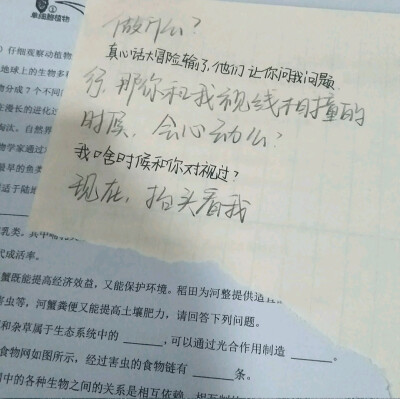 单细胞植物
仔细观察动植物
地球上的生物多
分成7个不同
漫长的进化过
淘汰，自然界
物学家通过
最早的鱼类
适于陆地
做什么？
真心话大冒险输了，他们让你问我问题
行，那你和我视线相撞的
时候，会心动么？
我啥时候和你对视过？
现在，抬头看我
乳类。其中哺
代成活率。
蟹既能提高经济效益，又能保护环境。稻田为河蟹提供适宜
害虫等，河蟹粪便又能提高土壤肥力，请回答下列问题。
和杂草属于生态系统中的______，可以通过光合作用制造______。
食物网如图所示，经过害虫的食物链有______条。
中的各种生物之间的关系是相互依赖、相互制约